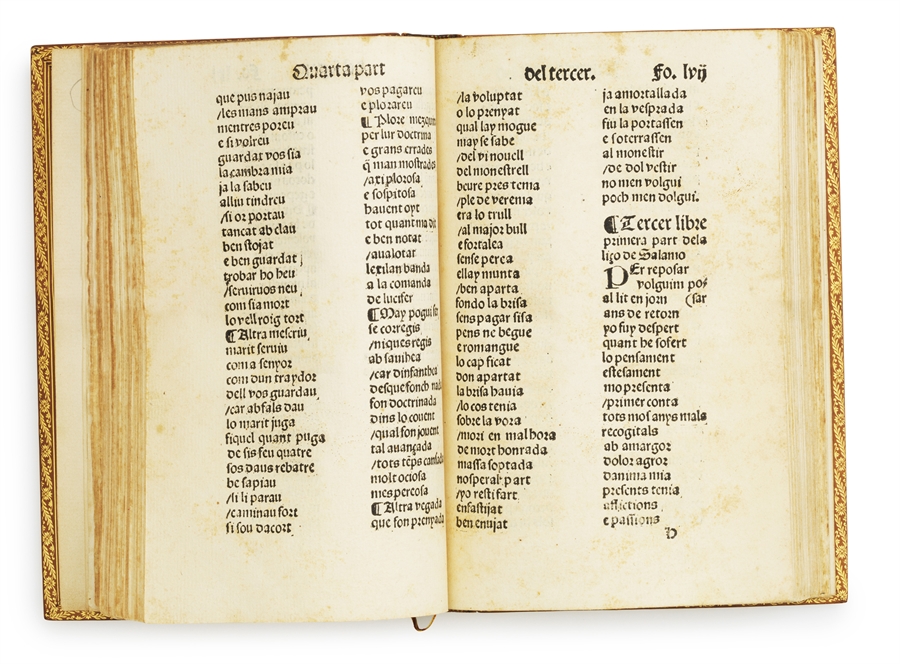 Quarta part
que pus najau
/les mans amprau
mentres poreu
e si volreu
guardat vos sia
la cambra mia
ja la sabeu
alliu tindreu
/si or portau
tancat ab clau
ben stojat
e ben guardat
trobar ho heu
/seruiruos neu
com sia mort
lo vell roig tort
¶Altra mescriu
marit seruiu
com a senyor
com dun traydor
dell vos guardau
/car ab fals dau
lo marit juga
fiquel quant puga
de sis feu quatre
sos daus rebatre
be sapiau
/si li parau
/caminau fort
si sou dacort
vos pagareu
e plorareu
¶Plore mezquin
per lur doctrina
e grans errades
q̃ man mostrades
/axi plorosa
e sospitosa
hauent oyt
tot quant ma dit
e ben notat
/aualotat
lextlan banda
a la comanda
de lucifer
¶May pogui fer
se corregis
/ni ques regis
ab sauihea
/car dinfanthea
desque fonch nada
fon doctrinada
dins lo couent
/qual fon jouent
tal auançada
/tots tẽps cansada
molt ociosa
mes pereosa
¶Altra vegada
que fon prenyada
del tercer. Fo. lvij
/la voluptat
o lo prenyat
qual lay mogue
may se sabe
/del vi nouell
del monestrell
beure pres tenia
/ple de verema
era lo trull
/al major bull
e fortalea
sense perea
ella y munta
/ben aparta
fondo la brisa
sens pagar sisa
pens ne begue
e romangue
lo cap ficat
don apartat
la brisa hauia
/lo cos tenia
sobre la vora
/mori en mal hora
de mort honrada
massa soptada
nosperal part
/yo resti fart
enfastijat
ben enujat
ja amortallada
en la vesprada
fiu la portassen
e soterrassen
al monestir
/de dol vestir
no men volgui
poch men dolgui.
¶Tercer libre
primera part dela
liço de Salamo
PEr reposar
volguim po⸗
al lit en jorn (sar
ans de retorn
yo fuy despert
quant he sofert
lo pensament
estesament
mo presenta
/primer conta
tots mos anys mals
recogitals
ab amargor
dolor agror
danima mia
presents tenia
afflictions
e passions
h